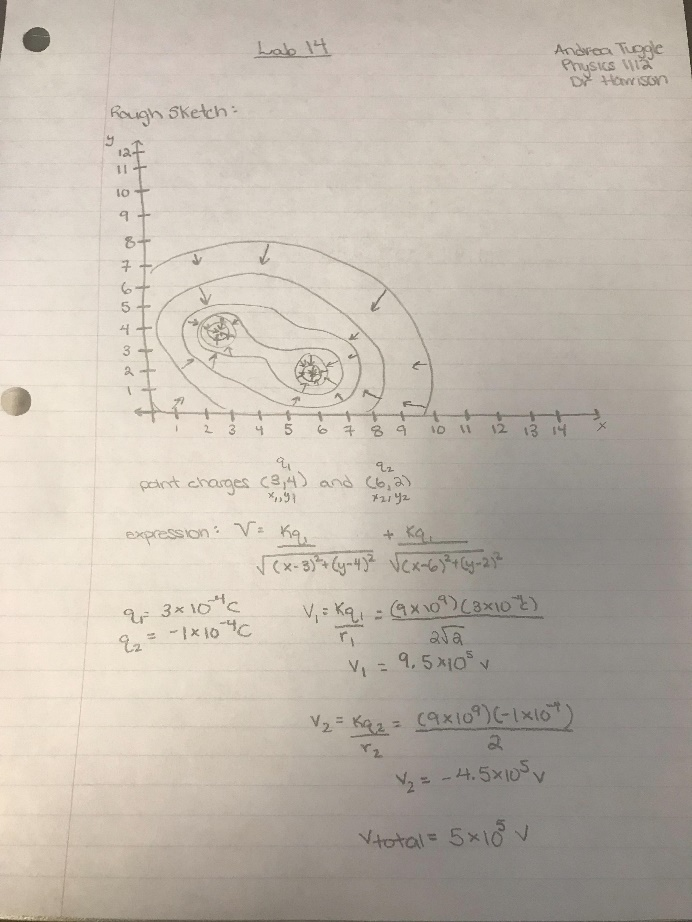 Lab 14
Andrea Tuggle
Physics 1112
Dr Harrison
Rough Sketch:
y
12
11
10
9
8
7
6
5
4
3
2
1
1 2 3 4 5 6 7 8 9 10 11 12 13 14 x
q₁ q₂
point charges (3,4) and (6,2)
x₁,y₁ x₂,y₂
expression: V = Kq₁ / √(x-3)²+(y-4)² + Kq / √(x-6)²+(y-2)²
q₁ = 3×10⁻⁴C
q₂ = -1×10⁻⁴C
V₁ = Kq₁ / r₁ = (9×10⁹)(3×10⁻⁴C) / 2√2
V₁ = 9.5×10⁵ V
V₂ = Kq₂ / r₂ = (9×10⁹)(-1×10⁻⁴) / 2
V₂ = -4.5×10⁵ V
Vtotal = 5×10⁵ V